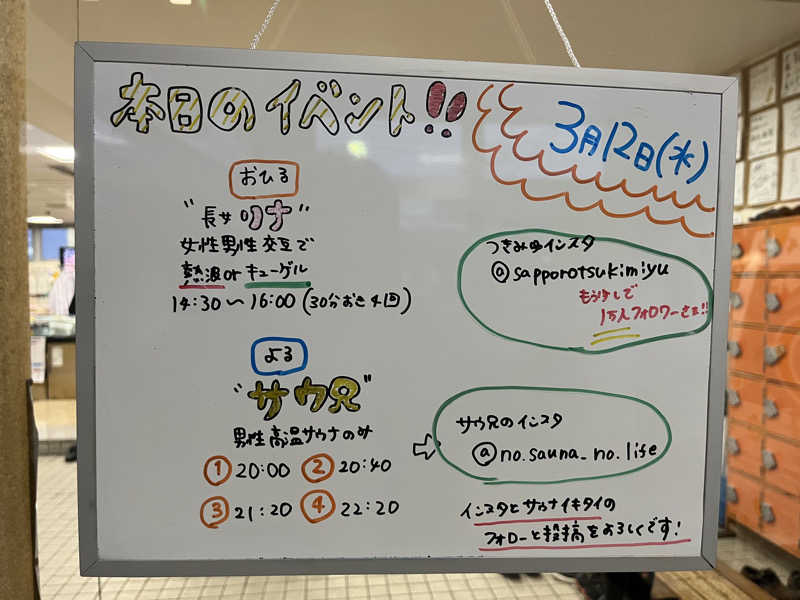 本日のイベント!!
3月12日(水)
おひる
"長サ リナ"
女性男性交互で
熱波orキューゲル
14:30〜16:00(30分おき4回)
よる
"サウ兄"
男性高温サウナのみ
① 20:00 ② 20:40
③ 21:20 ④ 22:20
つきみゆインスタ
@sapporotsukimiyu
もう少しで
1万人フォロワーさま!!
サウ兄のインスタ
⇨ @no.sauna_no.life
インスタとサウナイキタイの
フォローと投稿をよろしくです!